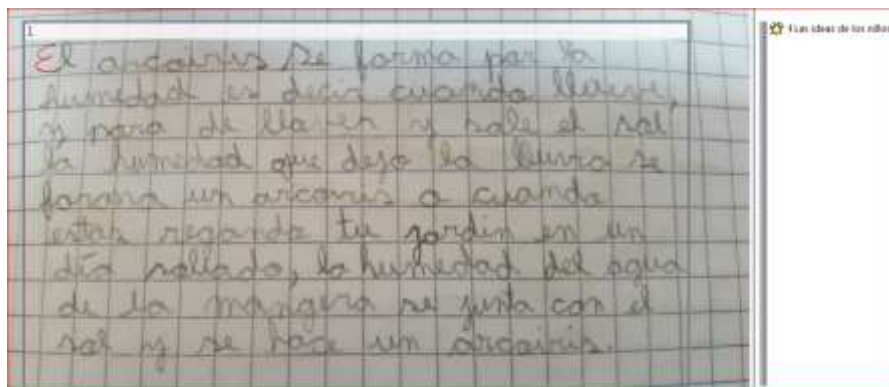 1
El arcoiris se forma por la
humedad es decir cuando llueve,
y para de llover y sale el sol
la humedad que dejo la lluvia se
forma un arcoiris o cuando
estas regando tu jardin en un
día solleado, la humedad del agua
de la mangera se junta con el
sol y se hace un arcoiris.
Las ideas de los niños